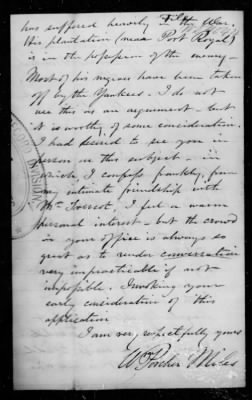 has suffered heavily by the War.
His plantation (near Port Royal)
is in the possession of the enemy—
Most of his negroes have been taken
off by the Yankees. I do not
use this as an argument— but
it is worthy of some consideration.
I had desired to see you in
person on this subject— in
which, I confess frankly, from
my intimate friendship with
Mr I feel a warm
personal interest— but the crowd
in your office is always so
great as to render conversation
very impracticable if not
impossible. Invoking your
early consideration of this
application
I am very respectfully yours
Wm Porcher Miles
DIVISION